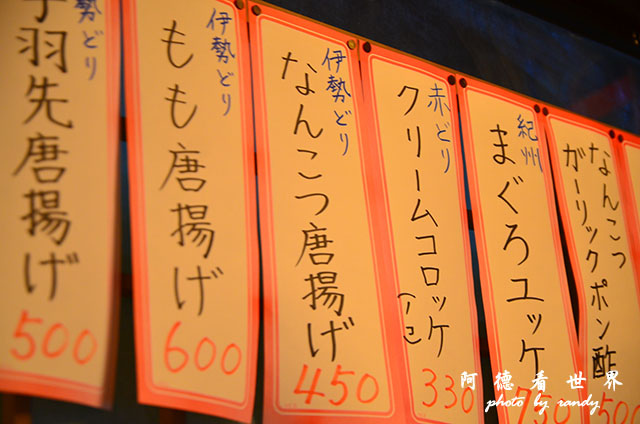 勢どり
羽先唐揚げ
500
伊勢どり
もも唐揚げ
600
伊勢どり
なんこつ唐揚げ
450
赤どり
クリームコロッケ
(1コ)
330
紀州
まぐろユッケ
750
なんこつ
ガーリックポン酢
500
阿德看世界
photo by randy